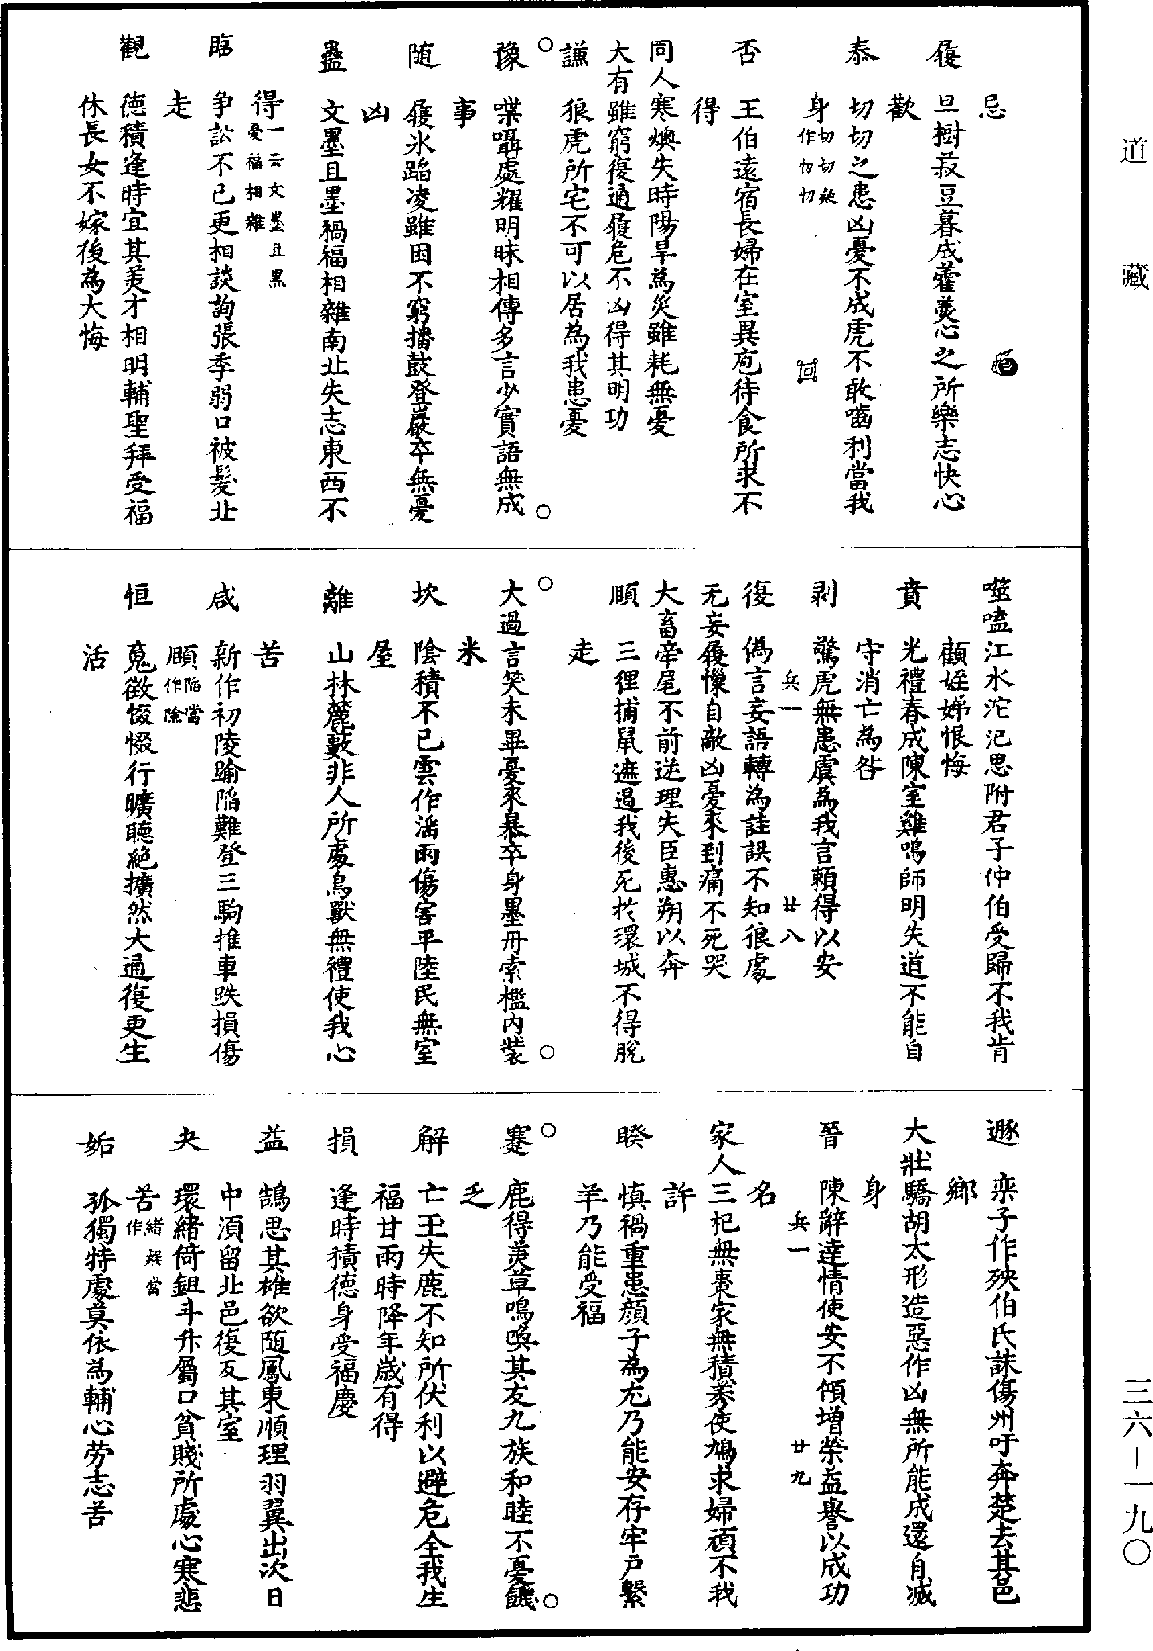 道藏
三六－一九〇
忌
履　旦樹菽豆暮成藿羹心之所樂志快心
歡
泰　切切之患凶憂不成虎不敢嚙利當我
身切切疑作切切　回
否　王伯遠宿長婦在室異庖待食所求不
得
同人寒燠失時陽旱為災雖耗無憂
大有雖窮復通履危不凶得其明功
謙　狼虎所宅不可以居為我患憂
豫　喋囁處耀明昧相傳多言少實語無成
事
隨　履氷蹈凌雖困不窮播鼓登巖卒無憂
凶
蠱　文墨且墨禍福相雜南北失志東西不
得一云文墨丑黑憂福相雜
臨　争訟不已更相談詢張季弱口被髮北
走
觀　德積逢時宜其美才相明輔聖拜受福
休長女不嫁後為大悔
噬嗑江水沱汜思附君子仲伯受歸不我肯
顧姪娣恨悔
賁　光禮春成陳室雞鳴師明失道不能自
守消亡為咎
剥　驚虎無患虞為我言賴得以安
兵一　廿八
復　偽言妄語轉為詿誤不知狼處
无妄履慄自敵凶憂來到痛不死哭
大畜牽尾不前送理失臣惠朔以奔
頤　三狸捕鼠遮遏我後死於環城不得脫
走
大過言笑未畢憂來暴卒身墨丹索檻内裝
米
坎　陰積不已雲作滛雨傷害平陸民無室
屋
離　山林麓藪非人所處鳥獸無禮使我心
苦
咸　新作初陵踰陷難登三駒推車跌損傷
頤陷當作除
恒　蒐儆惙惙行曠聽絶擴然大通復更生
活
遯　欒子作殃伯氏誅傷州吁奔楚去其邑
鄉
大壯驕胡太形造惡作凶無所能成還自滅
身
晉　陳辭達情使安不傾增榮益譽以成功
名
兵一　廿九
家人三杞無棗家無積莠使鳩求婦頑不我
許
睽　慎禍重患顔子為尤乃能安存牢戸繫
羊乃能受福
蹇　鹿得美草鳴喚其友九族和睦不憂饑
乏
解　亡王失鹿不知所伏利以避危全我生
福甘雨時降年歲有得
損　逢時積德身受福慶
益　鵠思其雄欲隨鳳東順理羽翼出次日
中湏留北邑復反其室
夬　環緒倚鉏斗升屬口貧賤所處心寒悲
苦緒疑當作
姤　孤獨特處莫依為輔心劳志苦